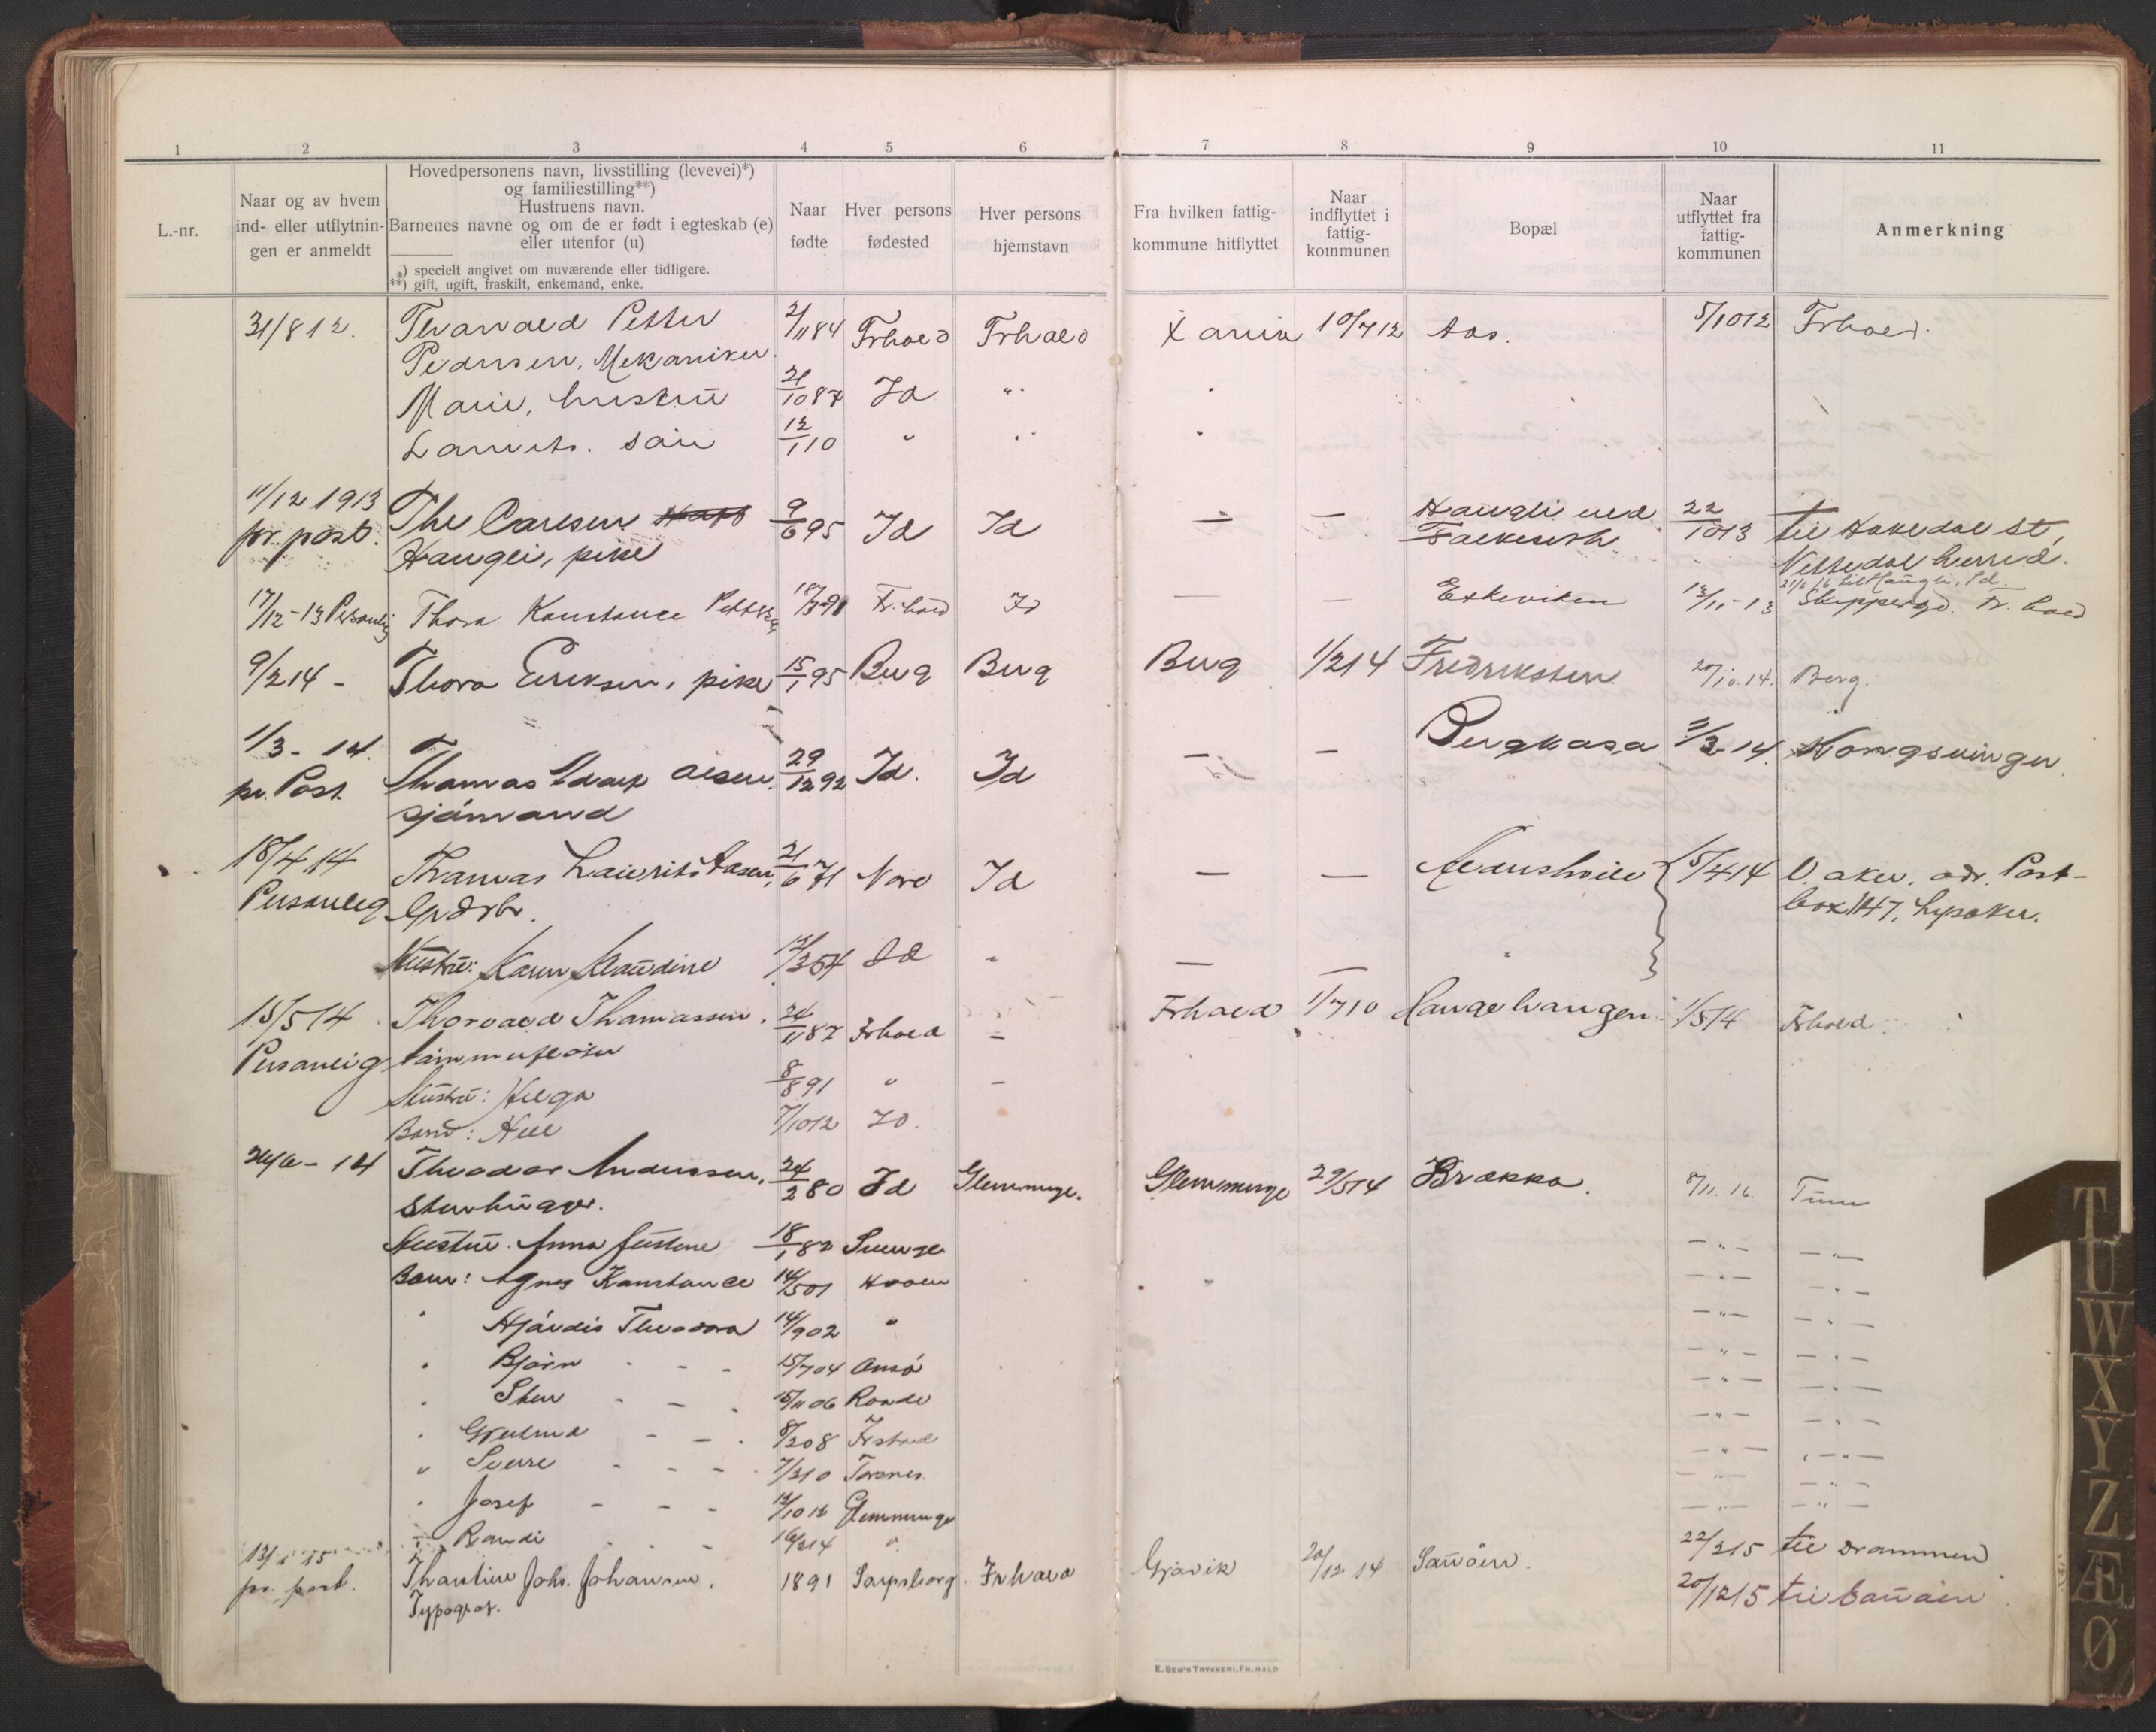 1 2 3 4 5 6 7 8 9 10 11
L.-nr.
Naar og av hvem
ind- eller utflytnin-
gen er anmeldt
Hovedpersonens navn, livsstilling (levevei)*)
og familiestilling**)
Hustruens navn.
Barnenes navne og om de er født i egteskab (e)
eller utenfor (u)
*) specielt angivet om nuværende eller tidligere.
**) gift, ugift, fraskilt, enkemand, enke.
Naar
fødte
Hver persons
fødested
Hver persons
hjemstavn
Fra hvilken fattig-
kommune hitflyttet
Naar
indflyttet i
fattig-
kommunen
Bopæl
Naar
utflyttet fra
fattig-
kommunen
Anmerkning
31/8 12. Thorvald Petter 2/11 84 Frhald Frhald Xania 10/7 12 Aas. 5/10 12 Frhald.
Pedersen, Mekaniker.
Marie, hustru 21/10 87 Id "
Laurits. søn 12/1 10 " "
11/12 1913 The Carlsen 9/6 95 Id Id — — Haugli ved 22/10 13 til Hakedal St,
pr. post. Haugli, pike Nittedal herred.
21/6 16 til Haugli, Id.
17/12-13 Personlig Thora Konstance Fr.hald Id — — Eskeviken 13/11-13 Skippergd. Fr. hald
9/2 14 - Thora Eriksen, pike 15/1 95 Berg Berg Berg 1/2 14 Fredriksten 20/10.14. Berg.
1/3-14. Thomas Olsen 29/12 92 Id. Id — — Bergkasa 11/3-14. Kongsvinger
pr. Post. sjømand
18/4 14 Thomas Laurits Aasen, 21/6 71 Id — — 15/4 14 V. aker. adr. Post-
Personlig Grdrbr. box 147, Lysaker.
Hustru: Karen Klaudine Id " —
15/5 14 Thorvald Thomassen. 24/11 87 Frhald — Frhald 1/7 10 Haugehaugen 1/5 14 Frhald.
Personlig tømmerfløter
Hustru: Helga 8/8 91 " —
Barn: 7/10 12 Id.
24/6-14 Theodor Anderssen, 24/2 80 Id Glemminge. Glemminge 29/5 14 Brække. 8/11.16. Tune
stenhugger.
Hustru. Anna Justine 18/1 82 — " — — " —
Barn: Agnes Konstance 14/5 01 — " — — " —
" Hjørdis Theodora 14/9 02 " — " — — " —
" Bjørn - - - 15/7 04 Onsø — " — — " —
" Sten - - - 15/11 06 Raade — " — — " —
" - - - 8/2 08 — " — — " —
" Sverre - - - 7/3 10 Torsnes. — " — — " —
" Josef - - - Glemminge — " — — " —
" Randi - - - 16/2 14 " — " — — " —
Johs. Johansen, 1891 Sarpsborg. Frhald Gjøvik 20/12 14 Sauøen. 22/2 15 til Drammen
pr. post. Typograf. 20/12 15 til Sauøen
E. SEM'S TRYKKERI, FR.HALD
T
U
W
X
Y
Z
Æ
Ø